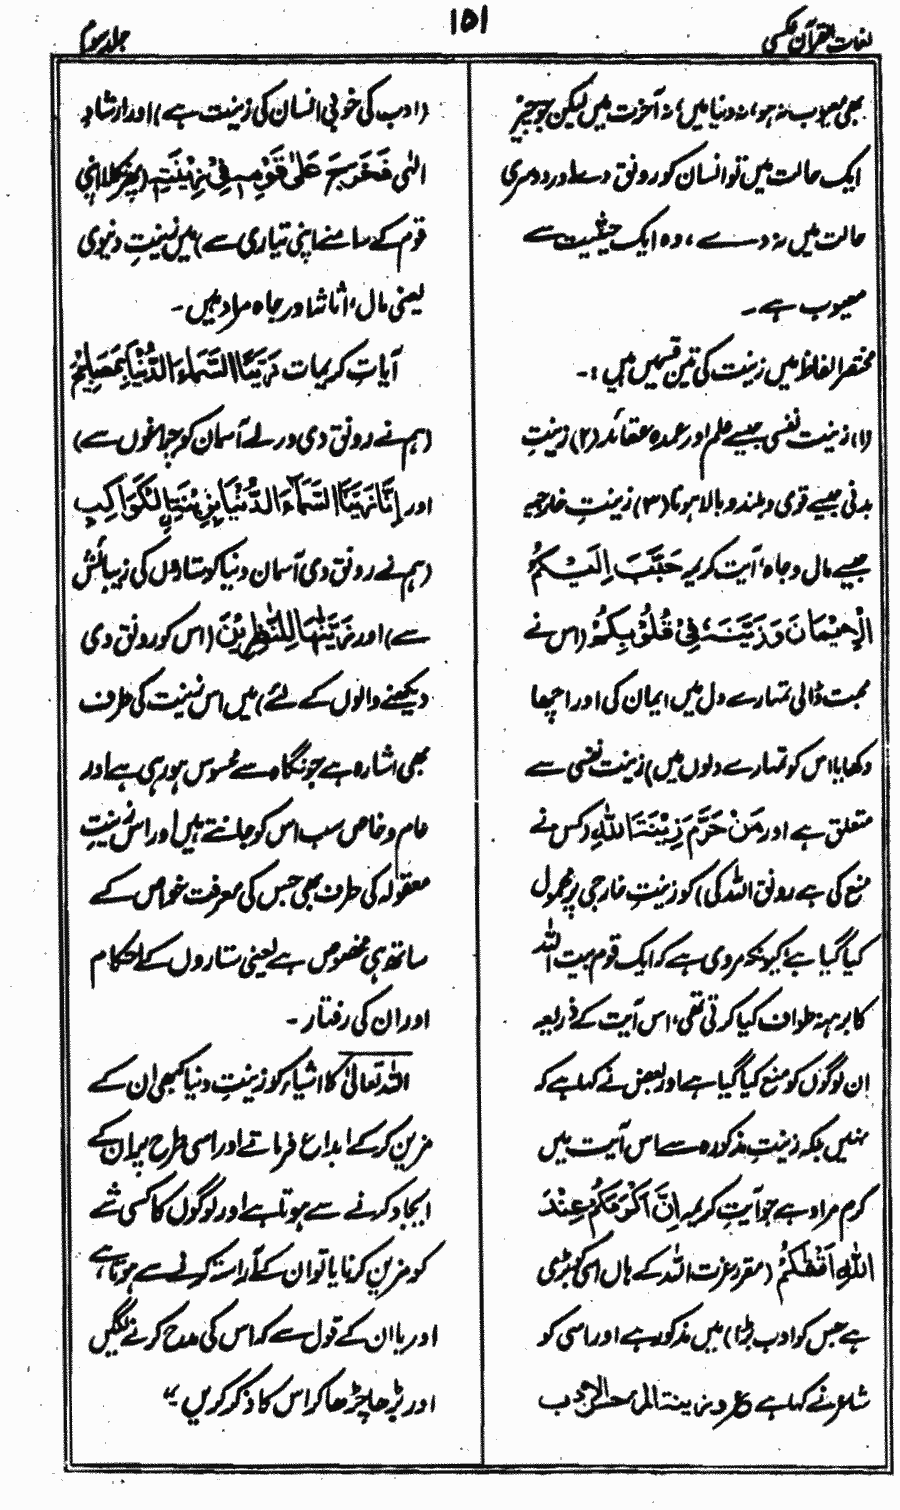 لغات القرآن عکسی
۱۵۱
جلد سوم
بھی معیوب نہ ہو، نہ دنیا میں، نہ آخرت میں لیکن جو چیز
ایک حالت میں تو انسان کو رونق دے اور دوسری
حالت میں نہ دے، وہ ایک حیثیت سے
معیوب ہے۔
مختصر الفاظ میں زینت کی تین قسمیں ہیں:۔
(۱) زینت نفسی جیسے علم اور عمدہ عقائد (۲) زینتِ
بدنی جیسے قوی و بلند و بالا ہونا (۳) زینتِ خارجیہ
جیسے مال و جاہ، آیت کریمہ حَبَّبَ اِلَیْکُمُ
الْاِیْمَانَ وَ زَیَّنَہٗ فِیْ قُلُوْبِکُمْ (اس نے
محبت ڈالی تمہارے دل میں ایمان کی اور اچھا
دکھایا اس کو تمہارے دلوں میں) زینت نفسی سے
متعلق ہے اور مَنْ حَرَّمَ زِیْنَۃَ اللّٰہِ (کس نے
منع کی ہے رونق اللہ کی) کو زینتِ خارجی پر محمول
کیا گیا ہے، کیونکہ مروی ہے کہ ایک قوم بیت اللہ
کا برہنہ طواف کیا کرتی تھی، اس آیت کے ذریعہ
ان لوگوں کو منع کیا گیا ہے اور بعض نے کہا ہے کہ
نہیں بلکہ زینتِ مذکورہ سے اس آیت میں
کرم مراد ہے جو آیتِ کریمہ اِنَّ اَکْرَمَکُمْ عِنْدَ
اللّٰہِ اَتْقٰکُمْ (مقرر عزت اللہ کے ہاں اسی کی بڑی
ہے جس کو ادب بڑا) میں مذکور ہے اور اسی کو
شاعر نے کہا ہے ع و زینۃ المرء حسن الادب
(ادب کی خوبی انسان کی زینت ہے) اور ارشادِ
الٰہی فَخَرَجَ عَلٰی قَوْمِہٖ فِیْ زِیْنَتِہٖ (پھر نکلا اپنی
قوم کے سامنے اپنی تیاری سے) میں زینتِ دنیوی
یعنی مال، اثاثہ اور جاہ مراد ہیں۔
آیاتِ کریمات زَیَّنَّا السَّمَاءَ الدُّنْیَا بِمَصَابِیْحَ
(ہم نے رونق دی ورلے آسمان کو چراغوں سے)
اور اِنَّا زَیَّنَّا السَّمَآءَ الدُّنْیَا بِزِیْنَۃِ ۨ الْکَوَاکِبِ
(ہم نے رونق دی آسمان دنیا کو ستاروں کی زیبائش
سے) اور زَیَّنّٰہَا لِلنّٰظِرِیْنَ (اس کو رونق دی
دیکھنے والوں کے لئے) میں اس زینت کی طرف
بھی اشارہ ہے جو نگاہ سے محسوس ہو رہی ہے اور
عام و خاص سب اس کو جانتے ہیں اور اس زینتِ
معقولہ کی طرف بھی جس کی معرفت خواص کے
ساتھ ہی مخصوص ہے یعنی ستاروں کے احکام
اور ان کی رفتار۔
اللہ تعالیٰ کا اشیاء کو زینتِ دنیا کبھی ان کے
مزین کر کے ابداع فرمانے اور اسی طرح پر ان کے
ایجاد کرنے سے ہوتا ہے اور لوگوں کا کسی شے
کو مزین کرنا یا تو ان کے آراستہ کرنے سے ہوتا ہے،
اور یا ان کے قول سے کہ اس کی مدح کرنے لگیں
اور بڑھا چڑھا کر اس کا ذکر کریں۔